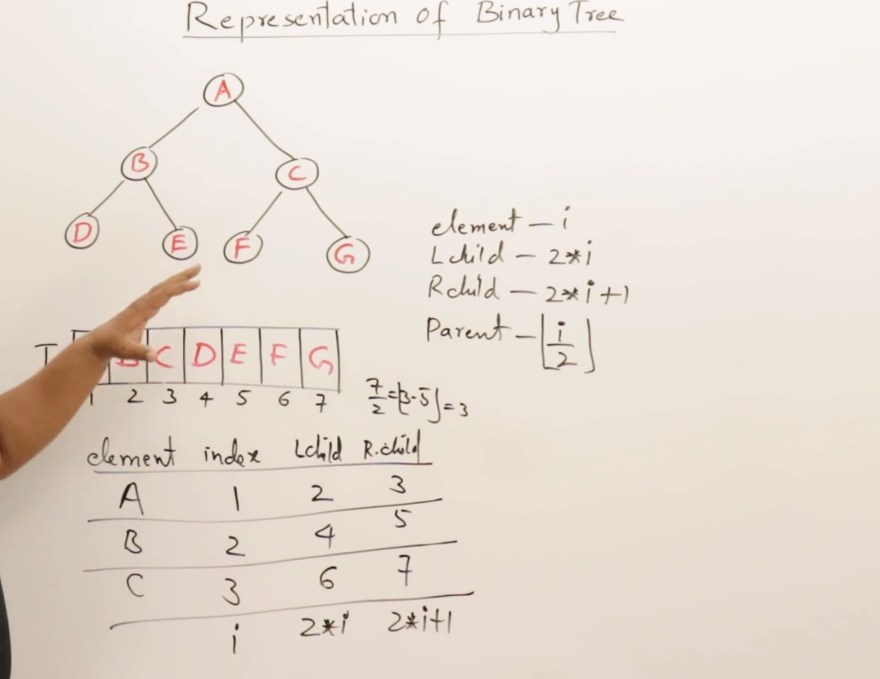 Representation of Binary Tree
A
B C
D E F G
element - i
Lchild - 2*i
Rchild - 2*i+1
Parent - ⌊i/2⌋
T C D E F G
2 3 4 5 6 7
7/2 = ⌊3.5⌋ = 3
element index Lchild R.child
A 1 2 3
B 2 4 5
C 3 6 7
i 2*i 2*i+1